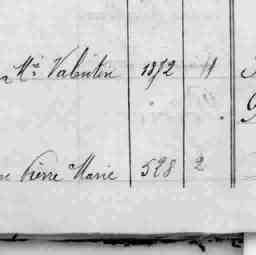 Mie Valentin 1872 11
ne Pierre Marie 528 2